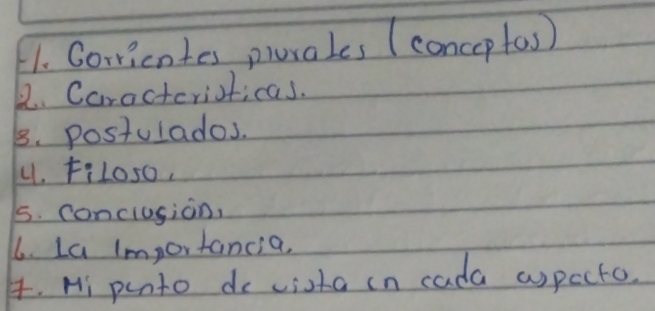 1. Corrientes plurales (conceptos)
2. Caracteristicas.
3. postulados.
4. Filoso.
5. conclusión.
6. La Importancia.
7. Mi punto de vista en cada aspecto.